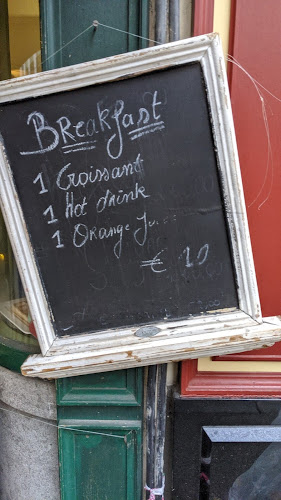 Breakfast
1 Croissant
1 Hot drink
1 Orange
€ 10